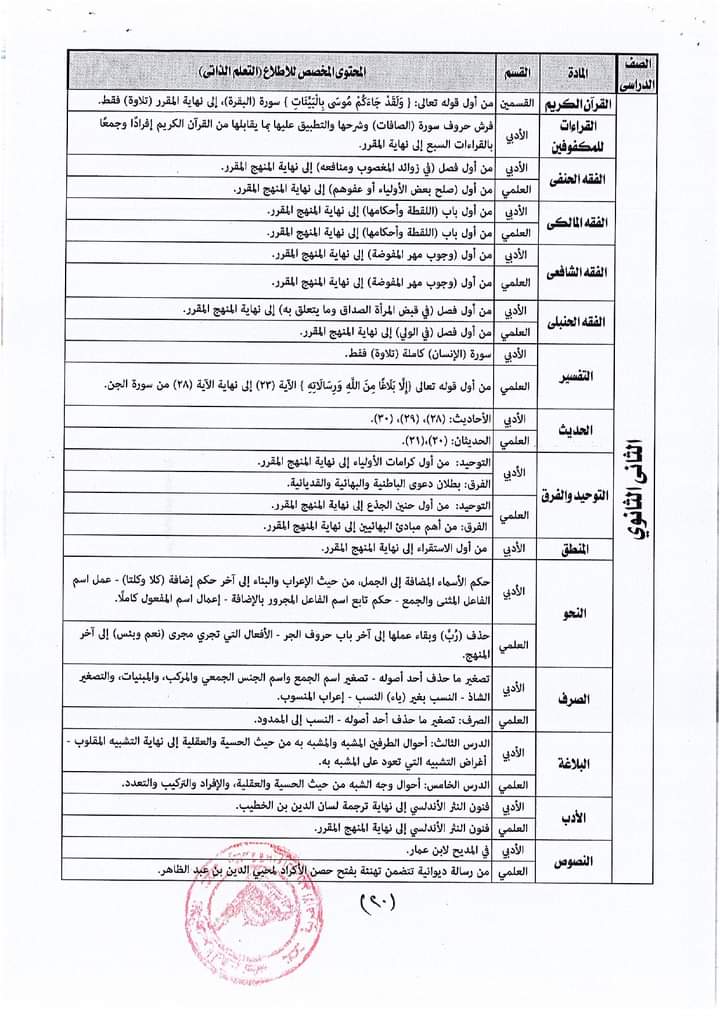 الصف الدراسى | المادة | القسم | المحتوى المخصص للاطلاع (التعلم الذاتى)
الثانى الثانوي
القرآن الكريم | القسمين | من أول قوله تعالى: { وَلَقَدْ جَاءَكُمْ مُوسَى بِالْبَيِّنَاتِ } سورة (البقرة)، إلى نهاية المقرر (تلاوة) فقط.
القراءات للمكفوفين | الأدبي | فرش حروف سورة (الصافات) وشرحها والتطبيق عليها بما يقابلها من القرآن الكريم إفرادًا وجمعًا
بالقراءات السبع إلى نهاية المقرر.
الفقه الحنفى | الأدبي | من أول فصل (في زوائد المغصوب ومنافعه) إلى نهاية المنهج المقرر.
العلمي | من أول (صلح بعض الأولياء أو عفوهم) إلى نهاية المنهج المقرر.
الفقه المالكى | الأدبي | من أول باب (اللقطة وأحكامها) إلى نهاية المنهج المقرر.
العلمي | من أول باب (اللقطة وأحكامها) إلى نهاية المنهج المقرر.
الفقه الشافعى | الأدبي | من أول (وجوب مهر المفوضة) إلى نهاية المنهج المقرر.
العلمي | من أول (وجوب مهر المفوضة) إلى نهاية المنهج المقرر.
الفقه الحنبلى | الأدبي | من أول فصل (في قبض المرأة الصداق وما يتعلق به) إلى نهاية المنهج المقرر.
العلمي | من أول فصل (في الولي) إلى نهاية المنهج المقرر.
التفسير | الأدبي | سورة (الإنسان) كاملة (تلاوة) فقط.
العلمي | من أول قوله تعالى {إِلَّا بَلَاغًا مِنَ اللَّهِ وَرِسَالَاتِهِ } الآية (٢٣) إلى نهاية الآية (٢٨) من سورة الجن.
الحديث | الأدبي | الأحاديث: (٢٨)، (٢٩)، (٣٠).
العلمي | الحديثان: (٢٠)،(٢١).
التوحيد والفرق | الأدبي | التوحيد: من أول كرامات الأولياء إلى نهاية المنهج المقرر.
الفرق: بطلان دعوى الباطنية والبهائية والقديانية.
العلمي | التوحيد: من أول حنين الجذع إلى نهاية المنهج المقرر.
الفرق: من أهم مبادئ البهائيين إلى نهاية المنهج المقرر.
المنطق | الأدبي | من أول الاستقراء إلى نهاية المنهج المقرر.
النحو | الأدبي | حكم الأسماء المضافة إلى الجمل، من حيث الإعراب والبناء إلى آخر حكم إضافة (كلا وكلتا) - عمل اسم
الفاعل المثنى والجمع - حكم تابع اسم الفاعل المجرور بالإضافة - إعمال اسم المفعول كاملًا.
العلمي | حذف (رُبَّ) وبقاء عملها إلى آخر باب حروف الجر - الأفعال التي تجري مجرى (نعم وبئس) إلى آخر
المنهج.
الصرف | الأدبي | تصغير ما حذف أحد أصوله - تصغير اسم الجمع واسم الجنس الجمعي والمركب، والمبنيات، والتصغير
الشاذ - النسب بغير (ياء) النسب - إعراب المنسوب.
العلمي | الصرف: تصغير ما حذف أحد أصوله - النسب إلى الممدود.
البلاغة | الأدبي | الدرس الثالث: أحوال الطرفين المشبه والمشبه به من حيث الحسية والعقلية إلى نهاية التشبيه المقلوب -
أغراض التشبيه التي تعود على المشبه به.
العلمي | الدرس الخامس: أحوال وجه الشبه من حيث الحسية والعقلية، والإفراد والتركيب والتعدد.
الأدب | الأدبي | فنون النثر الأندلسي إلى نهاية ترجمة لسان الدين بن الخطيب.
العلمي | فنون النثر الأندلسي إلى نهاية المنهج المقرر.
النصوص | الأدبي | في المديح لابن عمار.
العلمي | من رسالة ديوانية تتضمن تهنئة بفتح حصن الأكراد لمحيي الدين بن عبد الظاهر.
(٢٠)